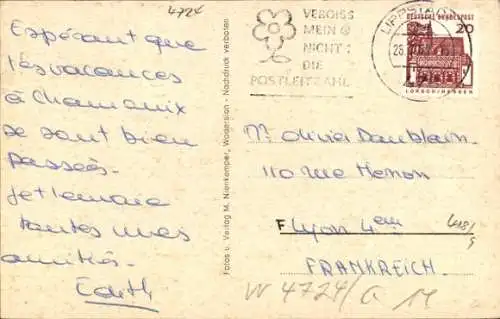 4724
Espérant que
tes vacances
à Chamonix
se sont bien
passées.
Je t'envoie
toutes mes
amitiés.
Edith
Fotos u. Verlag M. Nienkemper, Waderslon - Nachdruck verboten
VERGISS
MEIN
NICHT:
DIE
POSTLEITZAHL
LIPPSTADT
DEUTSCHE BUNDESPOST
20
LORSCH/HESSEN
M. Olivier
110 rue Henon
F Lyon 4em
FRANKREICH
W 4724/G 14